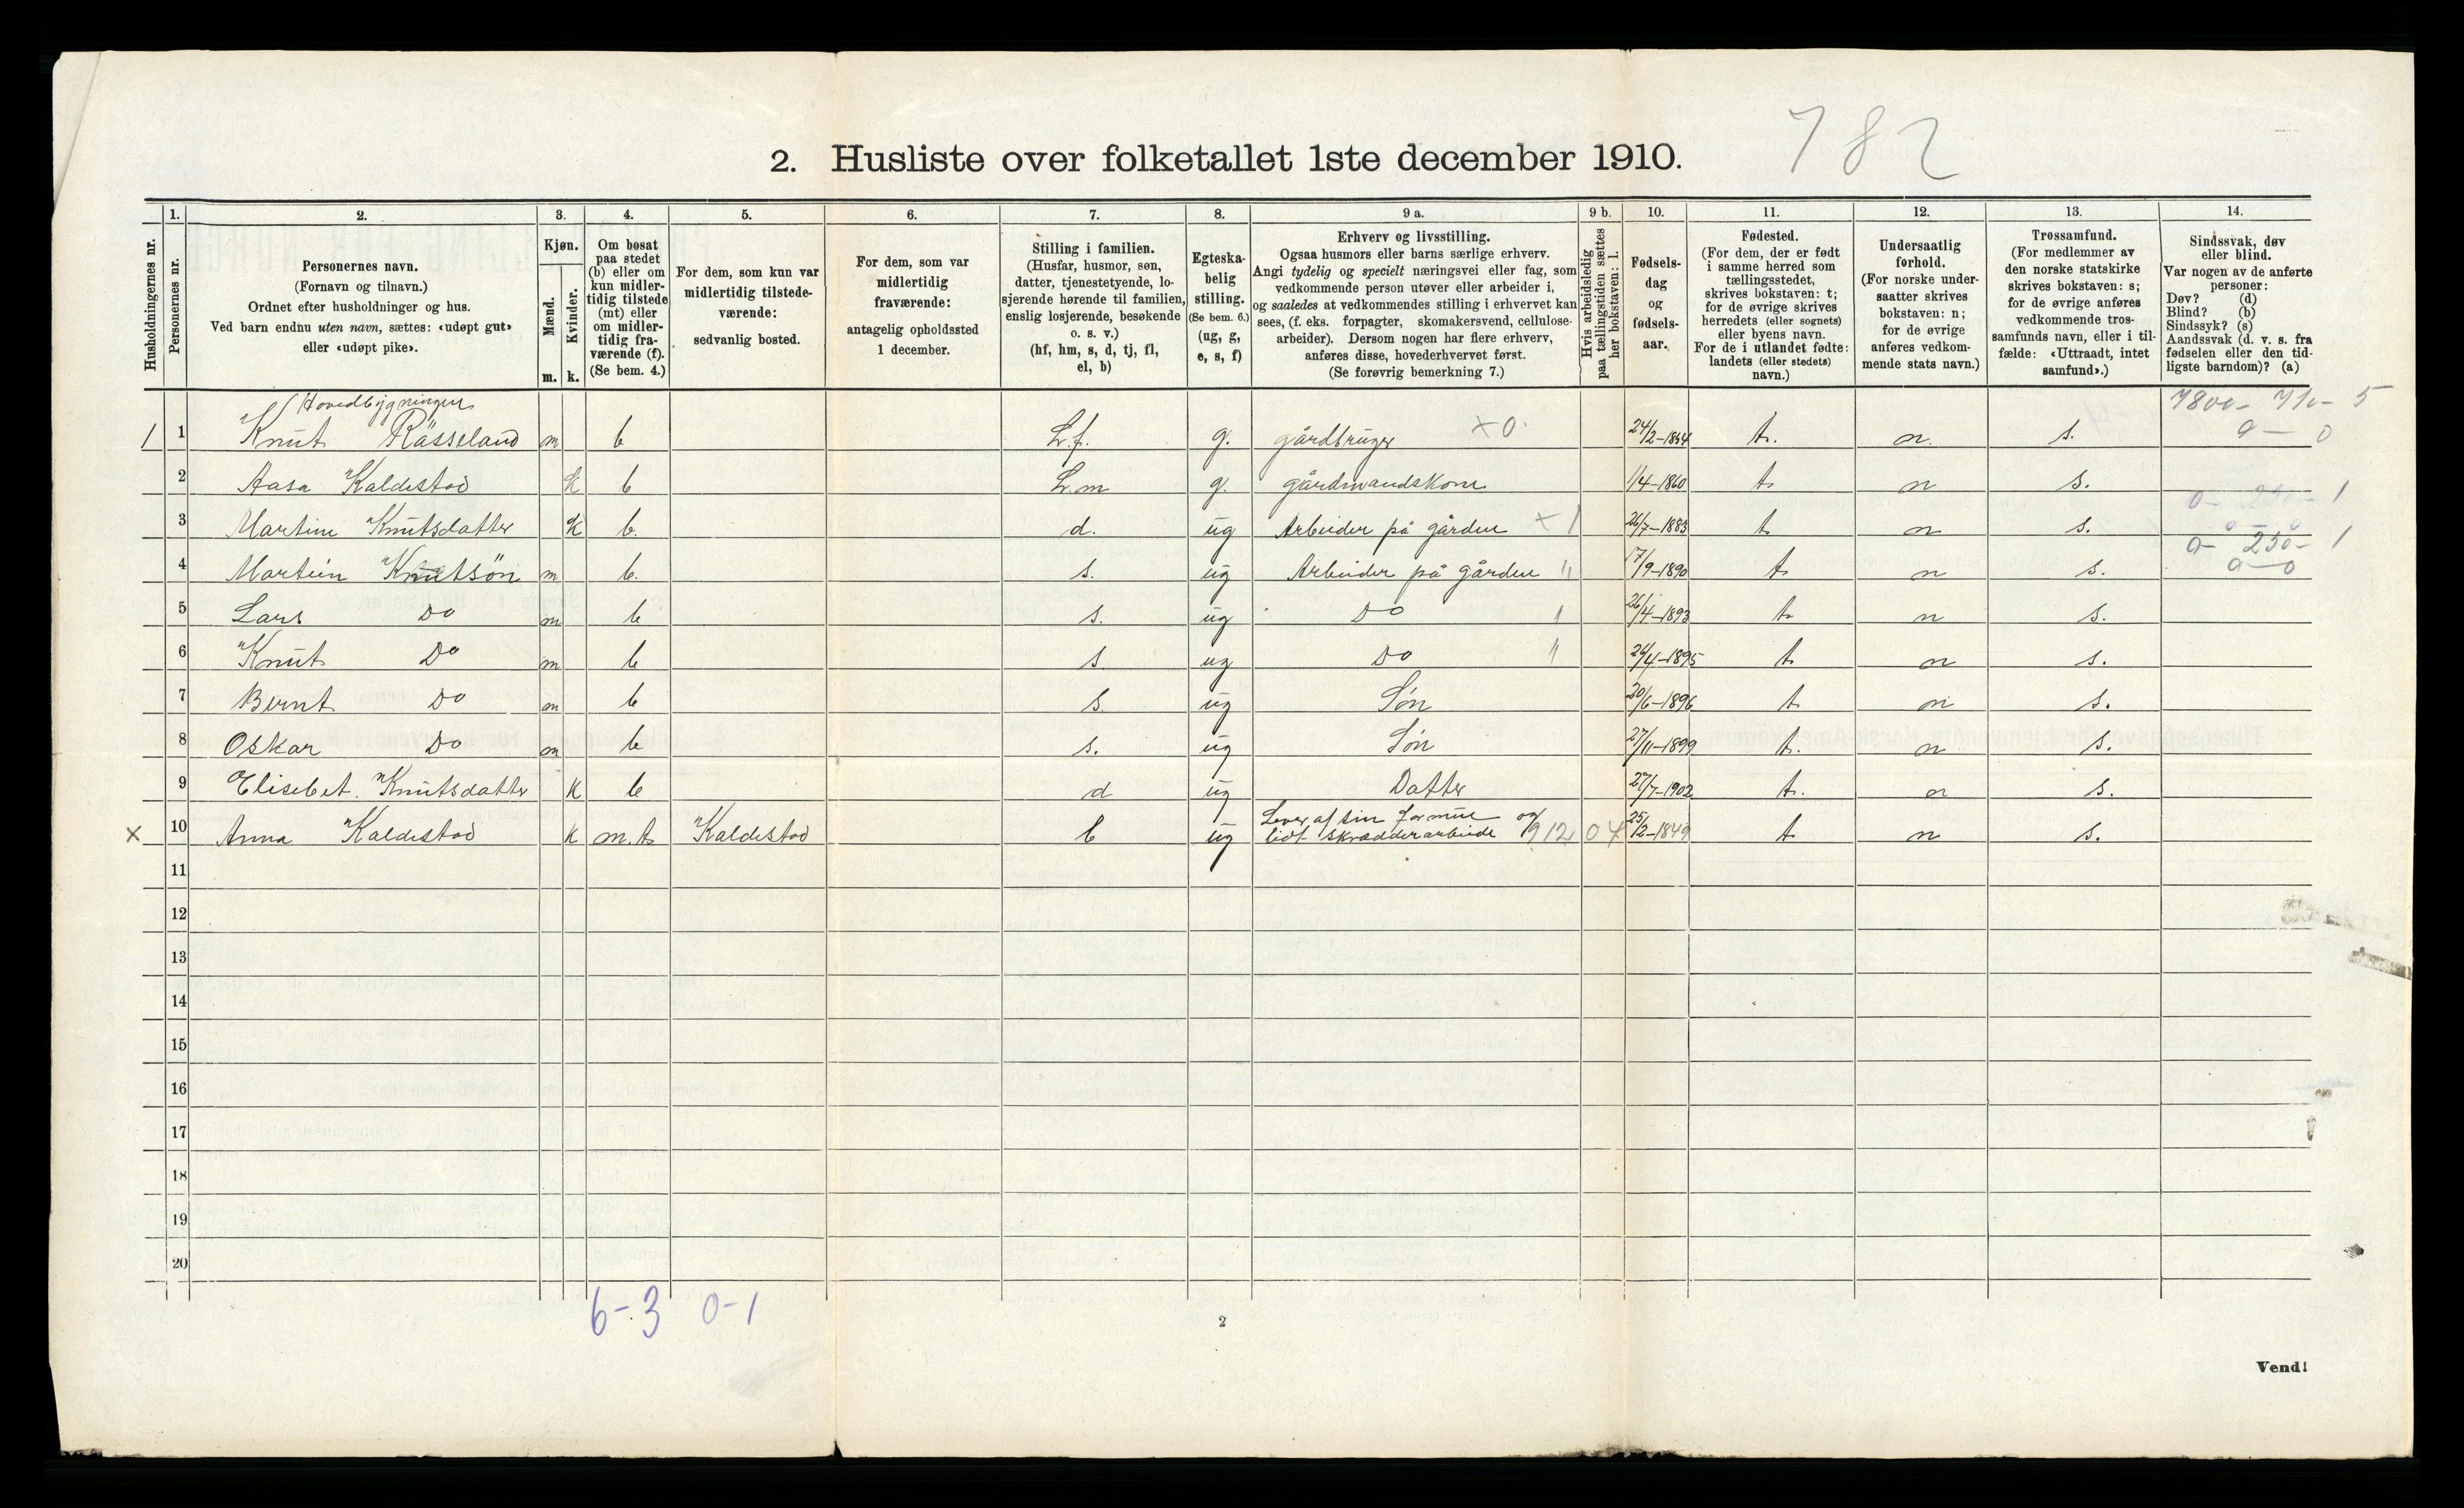 782
2. Husliste over folketallet 1ste december 1910.
Husholdningernes nr.
1.
Personernes nr.
2.
Personernes navn.
(Fornavn og tilnavn.)
Ordnet efter husholdninger og hus.
Ved barn endnu uten navn, sættes: «udøpt gut»
eller «udøpt pike».
3.
Kjøn.
Mænd.
Kvinder.
m. k.
4.
Om bosat
paa stedet
(b) eller om
kun midler-
tidig tilstede
(mt) eller
om midler-
tidig fra-
værende (f).
(Se bem. 4.)
5.
For dem, som kun var
midlertidig tilstede-
værende:
sedvanlig bosted.
6.
For dem, som var
midlertidig
fraværende:
antagelig opholdssted
1 december.
7.
Stilling i familien.
(Husfar, husmor, søn,
datter, tjenestetyende, lo-
sjerende hørende til familien,
enslig losjerende, besøkende
o. s. v.)
(hf, hm, s, d, tj, fl,
el, b)
8.
Egteska-
belig
stilling.
(Se bem. 6.)
(ug, g,
e, s, f)
9 a.
Erhverv og livsstilling.
Ogsaa husmors eller barns særlige erhverv.
Angi tydelig og specielt næringsvei eller fag, som
vedkommende person utøver eller arbeider i,
og saaledes at vedkommendes stilling i erhvervet kan
sees, (f. eks. forpagter, skomakersvend, cellulose-
arbeider). Dersom nogen har flere erhverv,
anføres disse, hovederhvervet først.
(Se forøvrig bemerkning 7.)
9 b.
Hvis arbeidsledig
paa tællingstiden sættes
her bokstaven: l.
10.
Fødsels-
dag
og
fødsels-
aar.
11.
Fødested.
(For dem, der er født
i samme herred som
tællingsstedet,
skrives bokstaven: t;
for de øvrige skrives
herredets (eller sognets)
eller byens navn.
For de i utlandet fødte:
landets (eller stedets)
navn.)
12.
Undersaatlig
forhold.
(For norske under-
saatter skrives
bokstaven: n;
for de øvrige
anføres vedkom-
mende stats navn.)
13.
Trossamfund.
(For medlemmer av
den norske statskirke
skrives bokstaven: s;
for de øvrige anføres
vedkommende tros-
samfunds navn, eller i til-
fælde: «Uttraadt, intet
samfund».)
14.
Sindssvak, døv
eller blind.
Var nogen av de anførte
personer:
Døv? (d)
Blind? (b)
Sindssyk? (s)
Aandssvak (d. v. s. fra
fødselen eller den tid-
ligste barndom)? (a)
Hovedbygningen 5
1 1 Knut Rässeland m b h.f. g. gårdbruger x0 24/2-1854 t. n. s. 0 — 0
2 Aasa Kaldestad k b h.m g. gårdmandskone 1/4-1860 t n s.
0- 250- 1
3 Martine Knutsdatter k b. d. ug Arbeider på gården x 1 26/7-1883 t n s. 0 - 0
0- 250- 1
4 Martin Knutsön m b. s. ug Arbeider på gården " 17/9-1890 t n s. 0-0
5 Lars Do m b s. ug Do " 26/4-1893 t n s.
6 Knut Do m b s ug Do " 24/4-1895 t n s.
7 Bernt Do m b s. ug Søn 20/6-1896 t n s.
8 Oskar Do m b s. ug Søn 27/11-1899 t. n s.
9 Elisebet. Knutsdatter k b d ug Datter 27/7-1902 t. n s.
Lever af sin formue og
x 10 Anna Kaldestad k m.t Kaldestad b ug lidt skrædderarbeide 912 04 25/2-1849 t n s.
11
12
13
14
15
16
17
18
19
20
6-3 0-1
2
Vend!